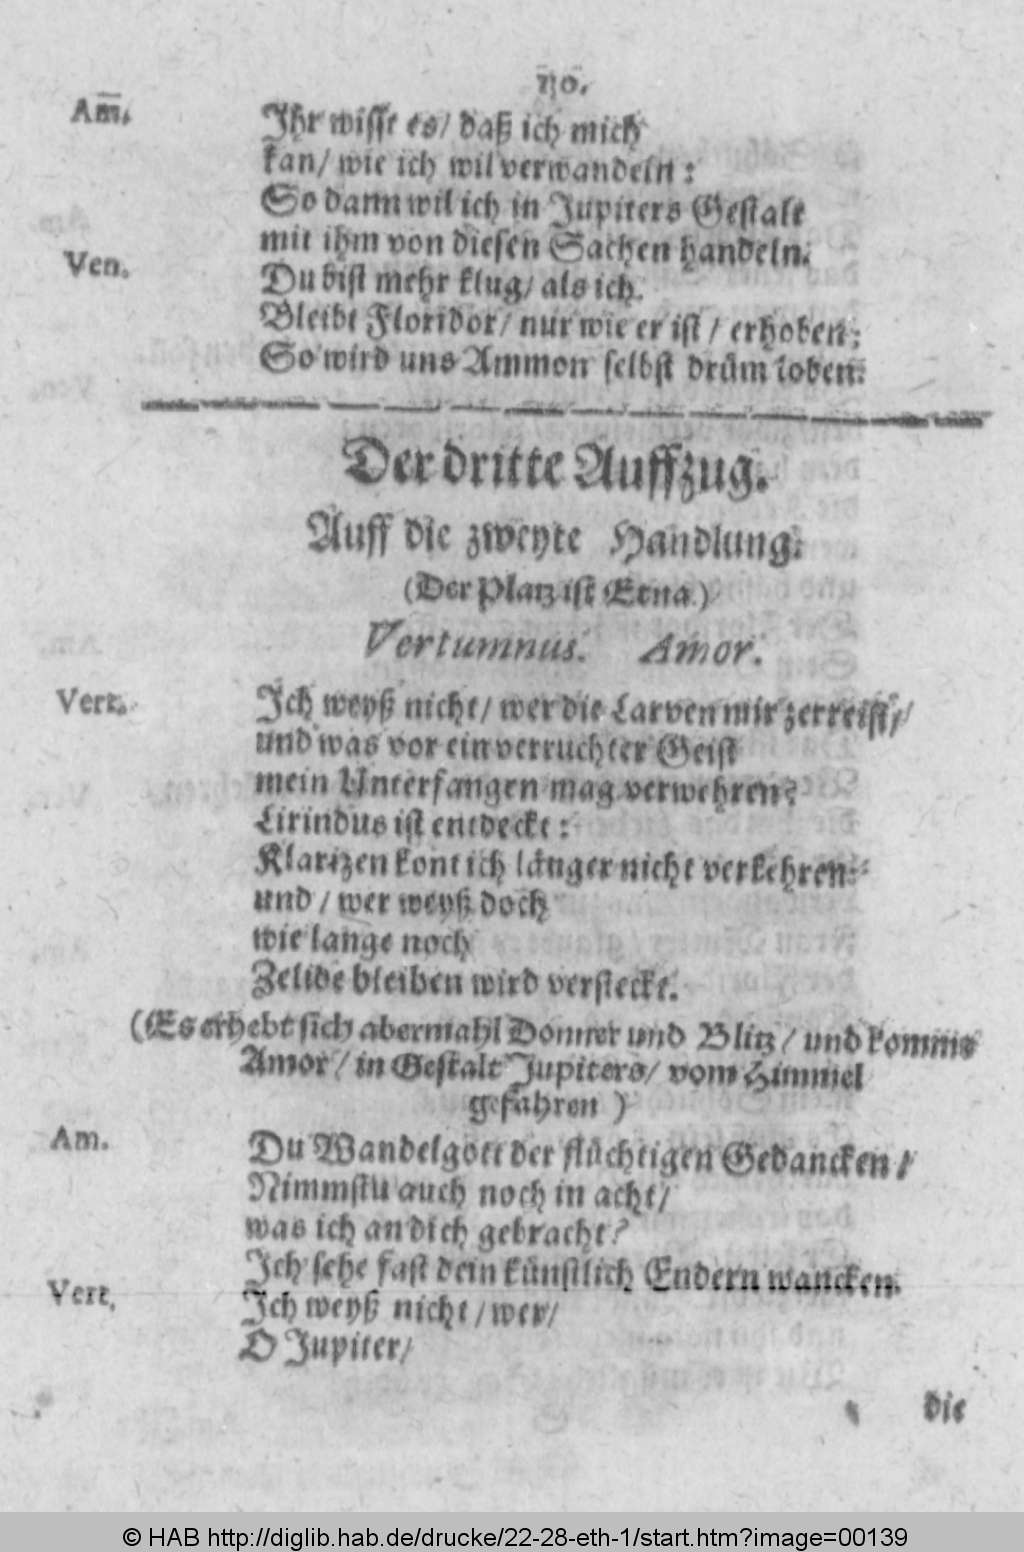 110.
Am̄. Ihr wisst es/ daß ich mich
kan/ wie ich wil verwandeln:
So dann wil ich in Jupiters Gestalt
mit ihm von diesen Sachen handeln.
Ven. Du bist mehr klug/ als ich.
Bleibt Floridor/ nur wie er ist/ erhoben;
So wird uns Ammon selbst drüm loben.
Der dritte Auffzug.
Auff die zweyte Handlung.
(Der Platz ist Etna.)
Vertumnus. Amor.
Vert. Ich weyß nicht/ wer die Larven mir zerreist/
und was vor ein verruchter Geist
mein Unterfangen mag verwehren?
Lirindus ist entdeckt:
Klarizen kont ich länger nicht verkehren:
und/ wer weyß doch
wie lange noch
Zelide bleiben wird versteckt.
(Es erhebt sich abermahl Donner und Blitz/ und kommt
Amor/ in Gestalt Jupiters/ vom Himmel
gefahren)
Am. Du Wandelgott der flüchtigen Gedancken/
Nimmstu auch noch in acht/
was ich an dich gebracht?
Ich sehe fast dein künstlich Endern wancken.
Vert. Ich weyß nicht/ wer/
O Jupiter/
die
© HAB http://diglib.hab.de/drucke/22-28-eth-1/start.htm?image=00139